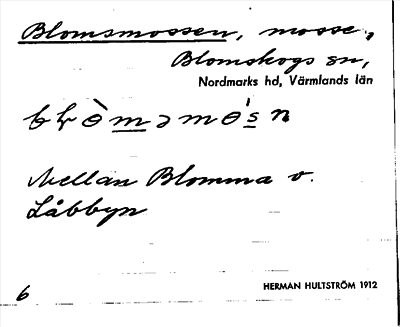 Blomsmossen, mosse,
Blomskogs sn,
Nordmarks hd, Värmlands län
Mellan Blomma o.
Låbbyn
6
HERMAN HULTSTRÖM 1912